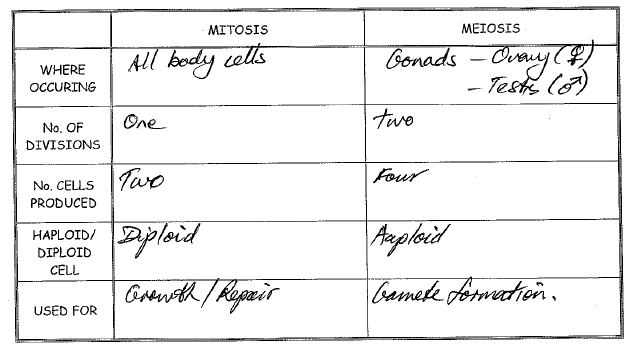 MITOSIS
MEIOSIS
WHERE OCCURING
All body cells
Gonads - Ovary (♀)
- Testis (♂)
No. OF DIVISIONS
One
two
No. CELLS PRODUCED
Two
Four
HAPLOID/ DIPLOID CELL
Diploid
Haploid
USED FOR
Growth / Repair
Gamete formation.